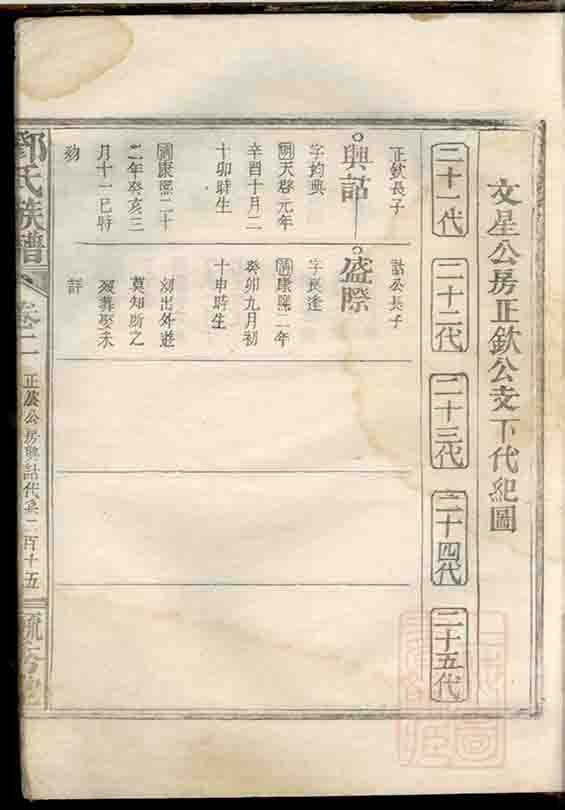 文星公房正欽公支下代紀圖
二十一代
二十二代
二十三代
二十四代
二十五代
正欽長子
興詁
字約典
明天啓元年
辛酉十月二
十卯時生
清康熙二十
二年癸亥三
月十一巳時
歿
詁公長子
盛際
字良逢
清康熙二年
癸卯九月初
十申時生
幼出外遊
莫知所之
歿葬娶未
詳
鄧氏族譜
卷二
正欽公房興詁代系二百十五